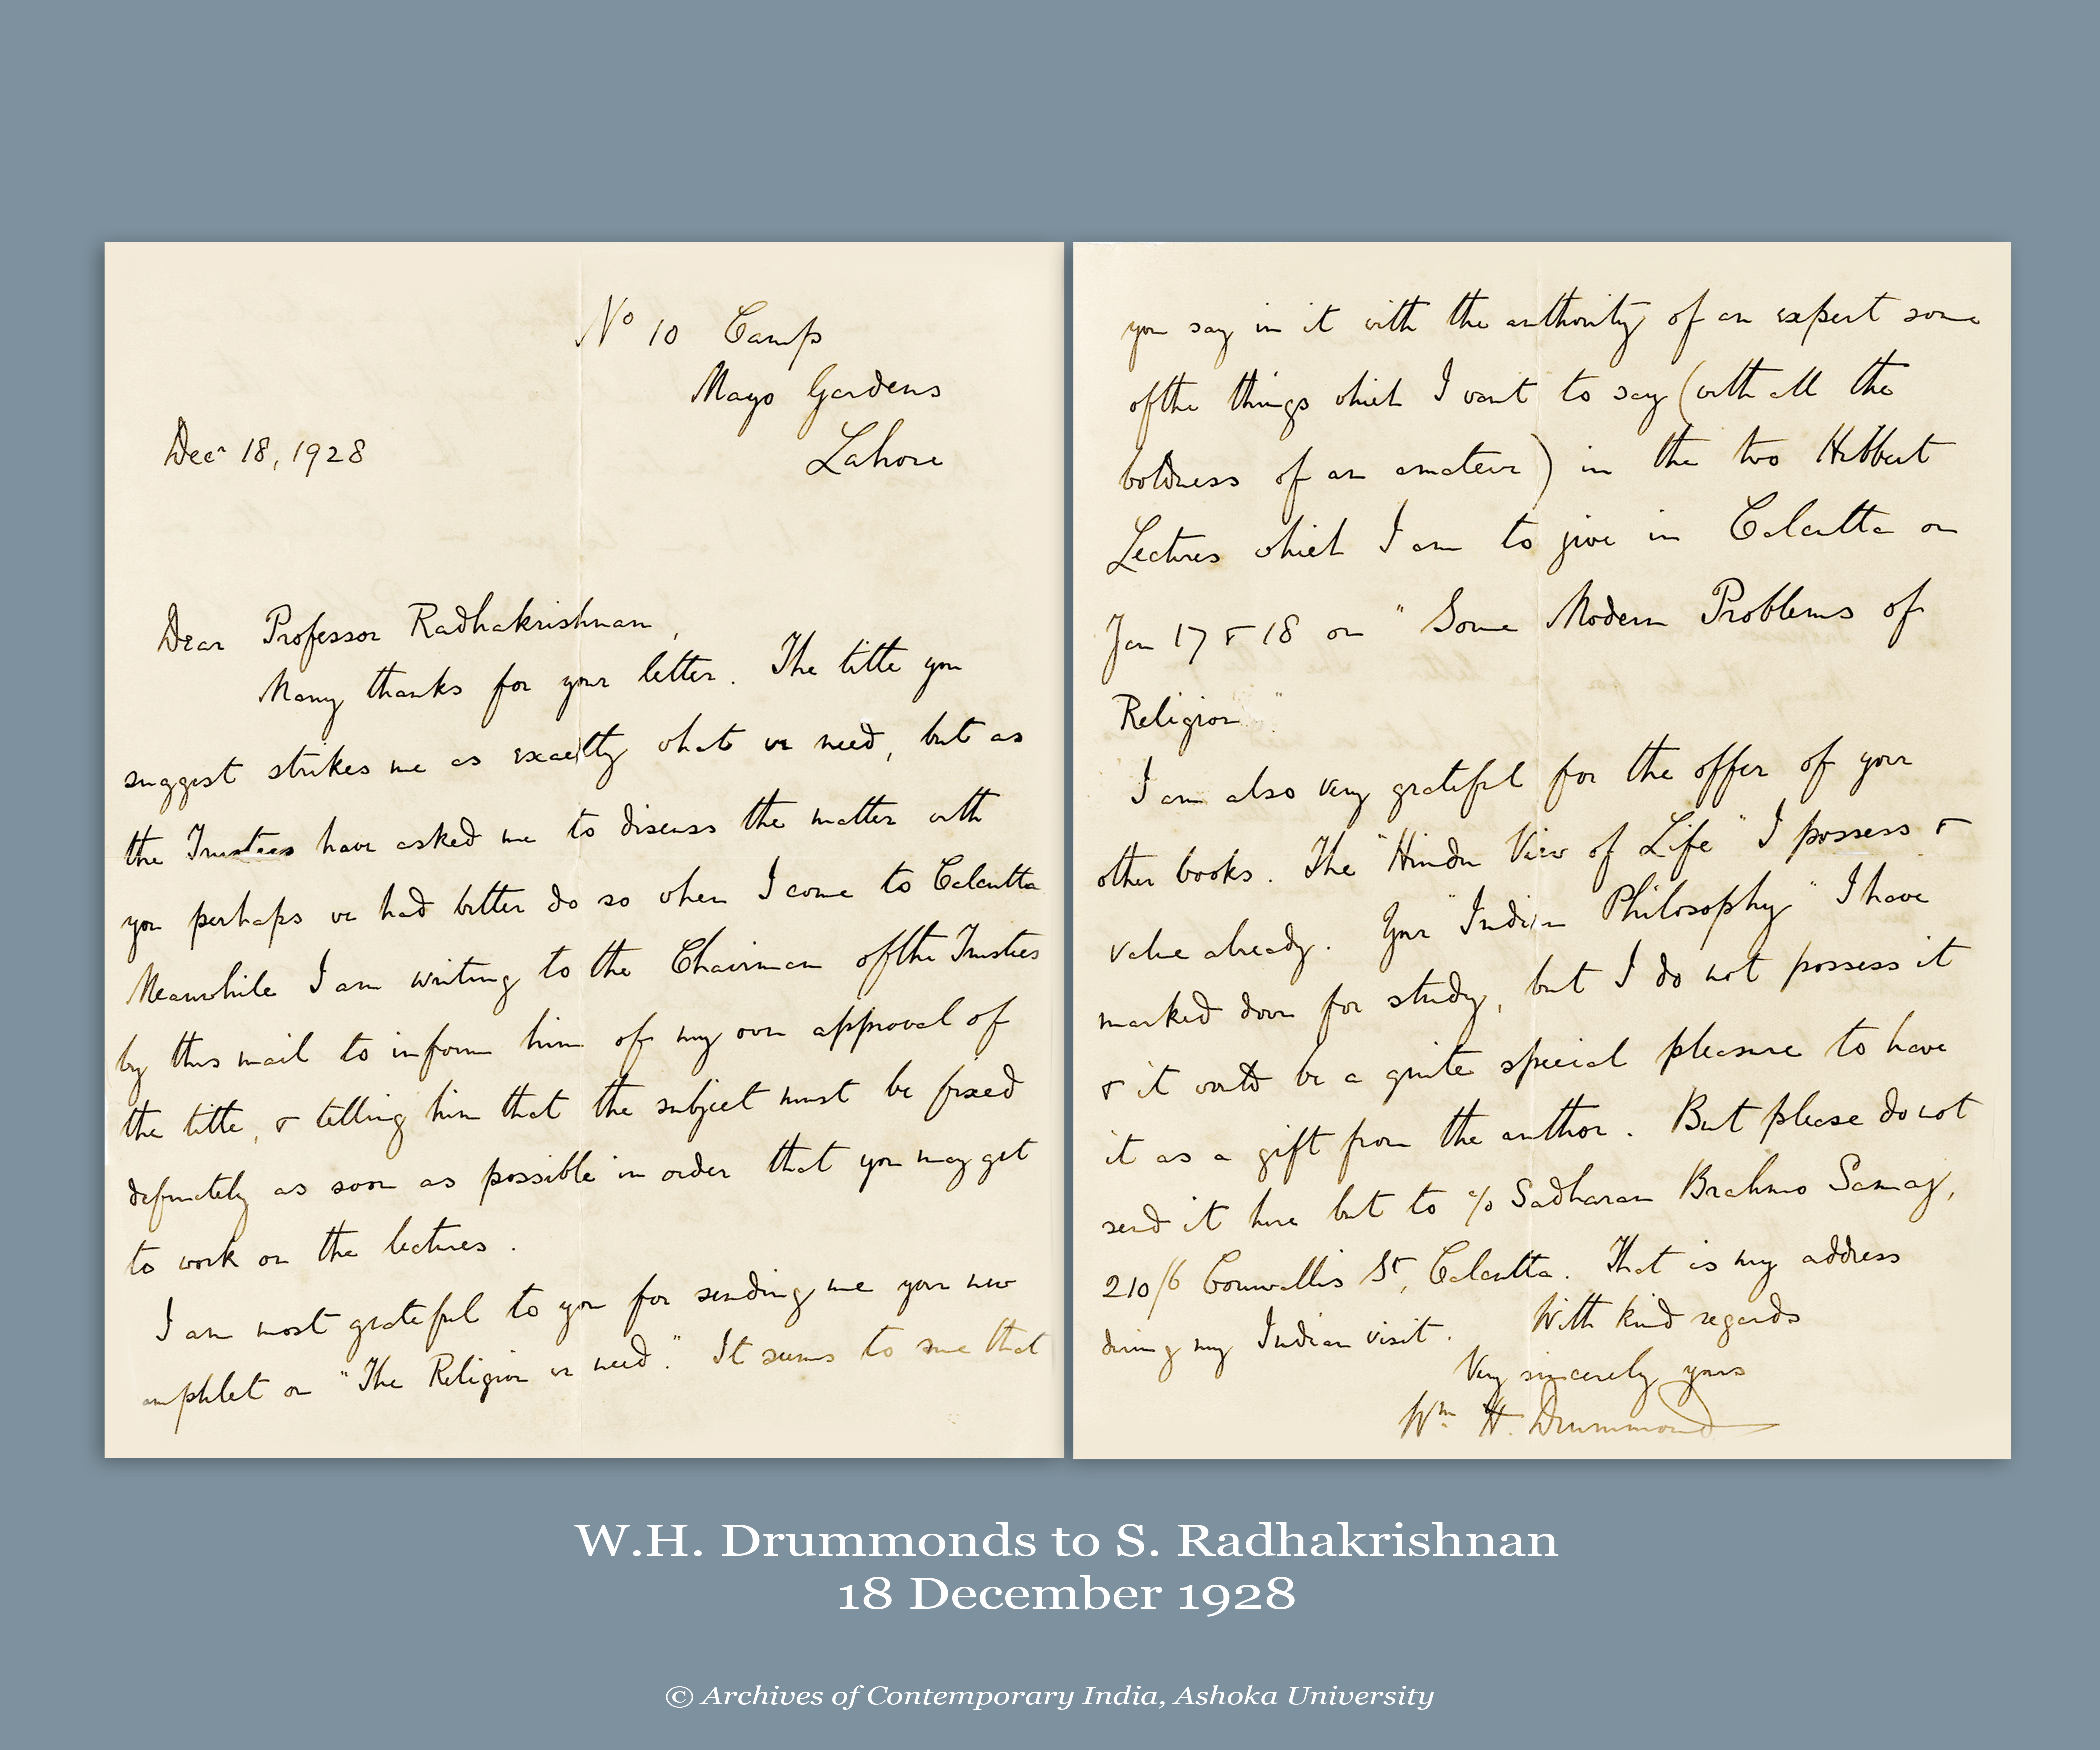 No 10 Camp
Mayo Gardens
Decr 18, 1928
Lahore
Dear Professor Radhakrishnan,
Many thanks for your letter. The title you
suggest strikes me as exactly what we need, but as
the Trustees have asked me to discuss the matter with
you perhaps we had better do so when I come to Calcutta
Meanwhile I am writing to the Chairman of the Trustees
by this mail to inform him of my own approval of
the title, & telling him that the subject must be fixed
definitely as soon as possible in order that you may get
to work on the lectures.
I am most grateful to you for sending me your new
amphlet on "The Religion we need." It seems to me that
you say in it with the authority of an expert some
of the things which I want to say (with all the
boldness of an amateur) in the two Hibbert
Lectures which I am to give in Calcutta on
Jan 17 & 18 on "Some Modern Problems of
Religion"
I am also very grateful for the offer of your
other books. The "Hindu View of Life" I possess &
value already. Your "Indian Philosophy" I have
marked down for study, but I do not possess it
& it would be a quite special pleasure to have
it as a gift from the author. But please do not
send it here but to c/o Sadharan Brahmo Samaj,
210/6 Cornwallis St, Calcutta. That is my address
during my Indian visit. With kind regards
Very sincerely yours
Wm H. Drummond
W.H. Drummonds to S. Radhakrishnan
18 December 1928
© Archives of Contemporary India, Ashoka University